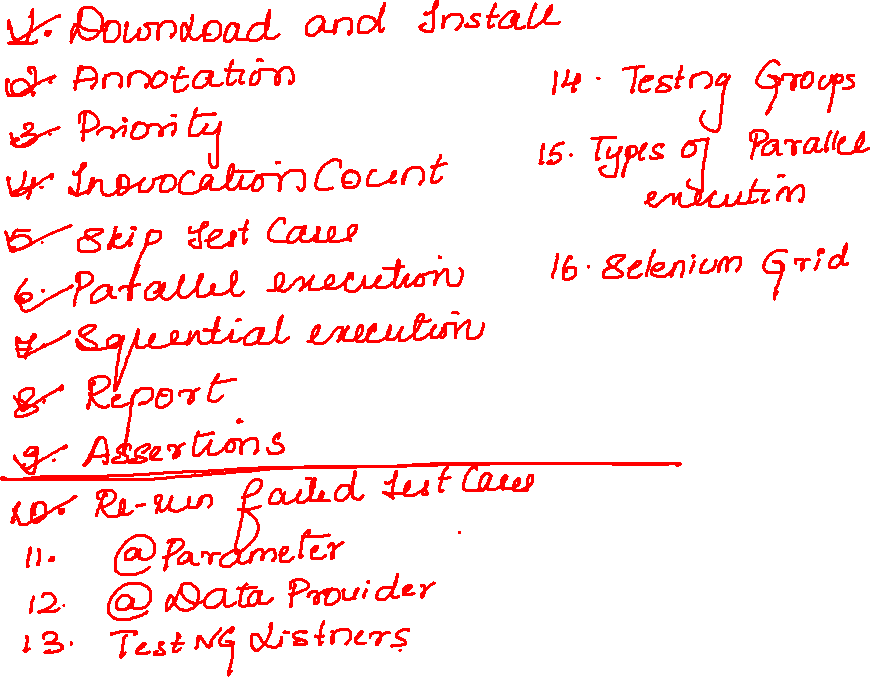 1. Download and Install
2. Annotation
3. Priority
4. Inovocation Count
5. Skip Test Cases
6. Parallel execution
7. Squential execution
8. Report
9. Assertions
10. Re-run failed Test Cases
11. @Parameter
12. @Data Provider
13. TestNG Listners
14. Testng Groups
15. Types of Parallel
execution
16. Selenium Grid